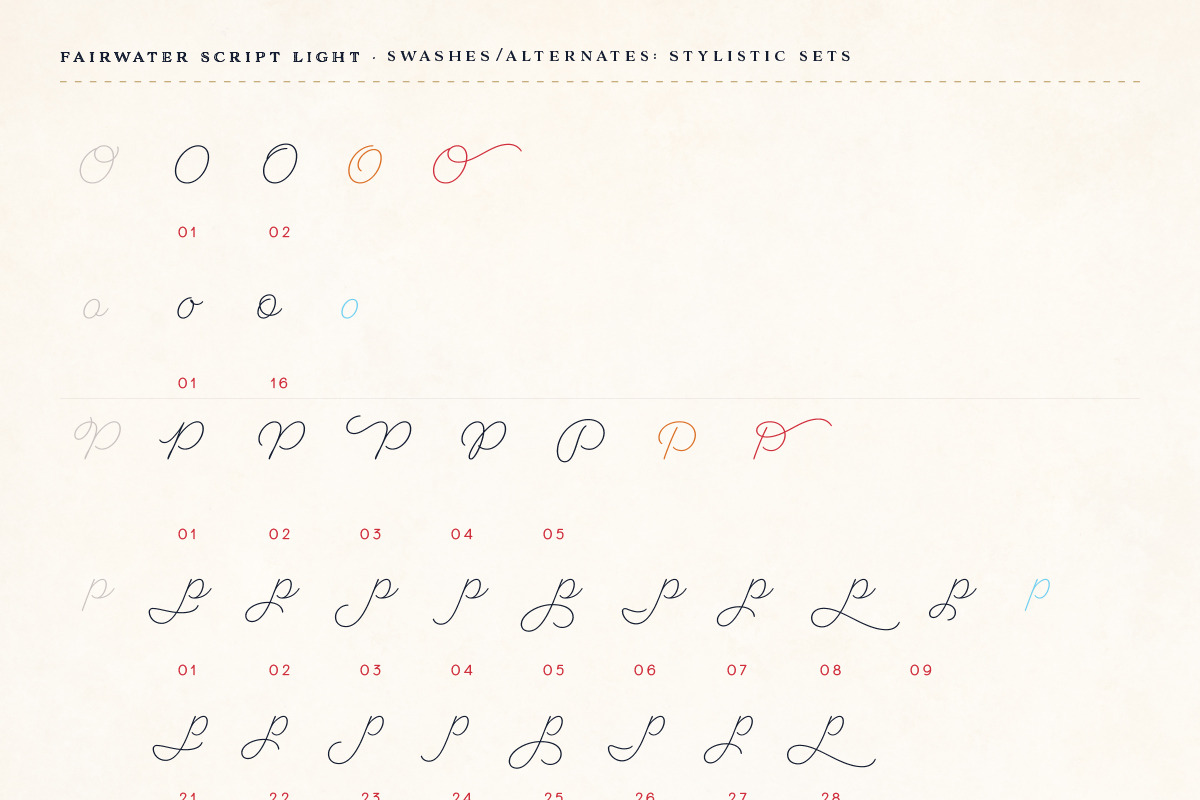 FAIRWATER SCRIPT LIGHT · SWASHES/ALTERNATES: STYLISTIC SETS
O O O O O
01 02
o o o o
01 16
P P P P P P P P
01 02 03 04 05
p p p p p p p p p p p
01 02 03 04 05 06 07 08 09
p p p p p p p p
21 22 23 24 25 26 27 28